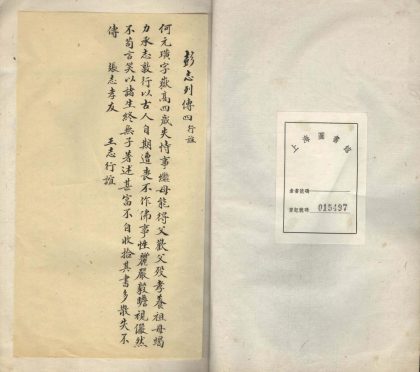 彭志列傳四行誼
何元璜字嶽高四歲失恃事繼母能得父歡父歿孝養祖母竭
力承志敦行以古人自期遭喪不作佛事性嚴毅瞻視儼然
不苟言笑以諸生終無子著述甚富不自收拾其書多散失不
傳 張志孝友 王志行誼
上海圖書館
登記號碼 015497